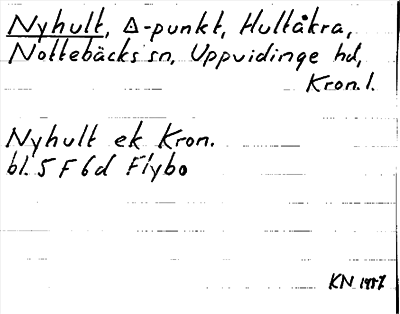 Nyhult, △-punkt, Hultåkra,
Nottebäcks sn, Uppvidinge hd,
Kron. l.
Nyhult ek Kron.
bl. 5 F 6d Flybo
KN 1987